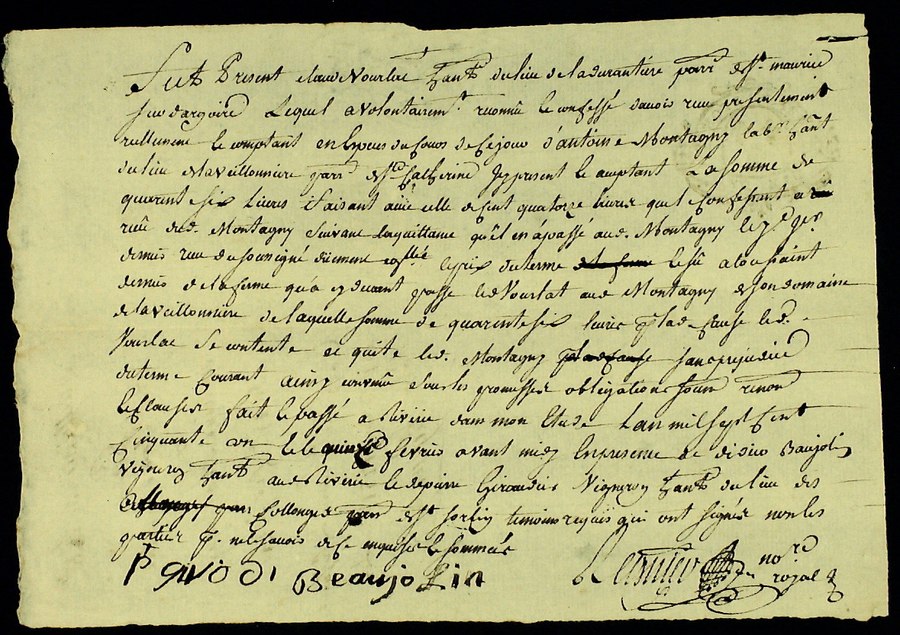 Fut Present claude Vourlat habt. du lieu de la durantiere parr. de St. maurice
sur dargoire Lequel a volontairemt. reconnu & confessé davoir reçu presentement
reellement & comptant en Especes du Cours de Ce jour d'antoine Montagny lab. habt.
du lieu de la veillonniere parr. de Ste. Catherine icy present & acceptant La somme de
quarente six Livres & faisant avec celle de Cent quatorze livres quil Confesse avoir
reçu dud. Montagny suivant la quittance quil en a passé aud. Montagny le
dernier reçu du soussigné düement le prix du terme échu a la toussaint
dernier de la ferme qua cy devant passé led. Vourlat aud. Montagny de son domaine
de la veillonniere de laquelle somme de quarente six livres led.
Vourlat se contente et quite led. Montagny sans prejudice
du terme Courant ainsy convenu sous les promesses obligations soum. renon.
& Clauses fait & passé a Riverie dans mon Etude Lan mil sept Cent
Cinquante un & le quinze fevrier avant midy En presence de Beaujolin
Vigneron habt. aud. Riverie & de pierre Giraudier Vigneron habt. du lieu des
Collonges parr. de St. Sorlin temoins requis qui ont signés non les
parties p. ne le savoir de Ce enquises & sommées
P givodi Beaujolin nore. royal